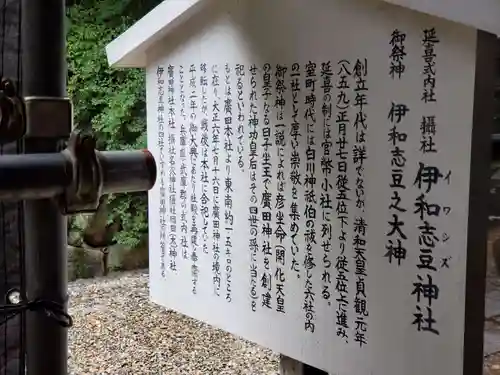 延喜式内社 摂社 伊和志豆神社
イワシズ
御祭神 伊和志豆之大神
創立年代は詳でないが、清和天皇貞観元年
(八五九)正月廿七日従五位下より従五位上に進み、
延喜の制には官幣小社に列せられる。
室町時代には白川神祇伯の祓を修した六社の内
の一社として厚い崇敬を集めていた。
御祭神は一説に彦坐命(開化天皇
の皇子なる日子坐王で廣田神社を創建
せられた神功皇后はその四世の孫に当たる)を
祀るといわれている。
もとは廣田本社より東南約一・五キロのところ
に在り、大正六年七月十六日に廣田神社の境内に
移転したが、戦後は本社に合祀していた。
平成
廣田神社本社・摂社名次神社・摂社岡田神社・
伊和志豆神社